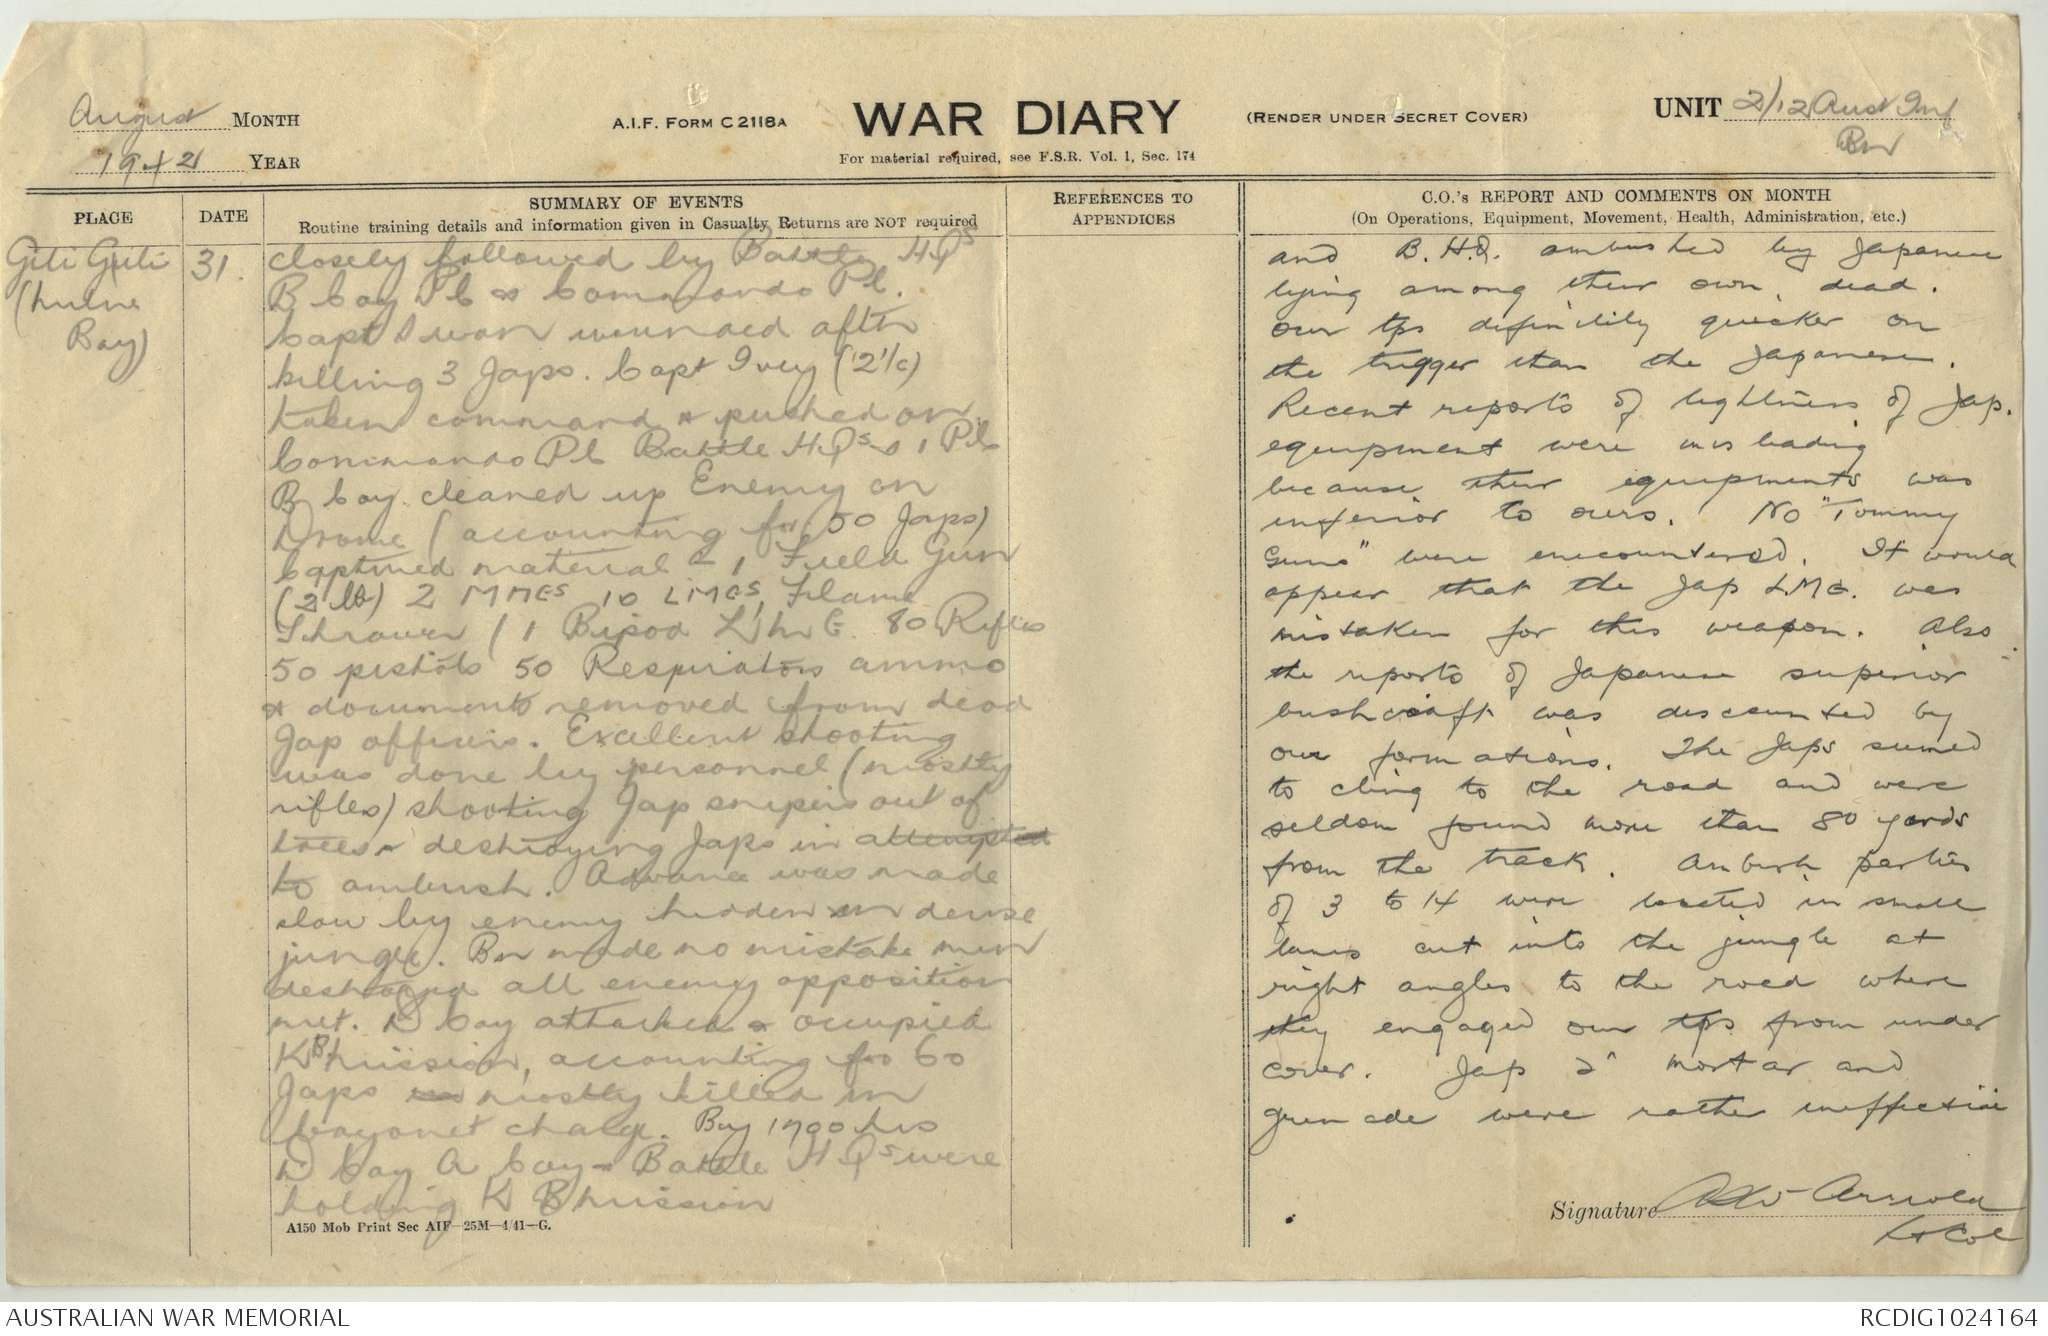 August MONTH
1942 YEAR
A.I.F. FORM C2118A
WAR DIARY
For material required, see F.S.R. Vol. 1, Sec. 174
(RENDER UNDER SECRET COVER)
UNIT 2/12 Aust Inf
Bn
PLACE
DATE
SUMMARY OF EVENTS
Routine training details and information given in Casualty Returns are NOT required
REFERENCES TO
APPENDICES
C.O.'s REPORT AND COMMENTS ON MONTH
(On Operations, Equipment, Movement, Health, Administration, etc.)
Gili Gili
(Milne
Bay)
31.
closely followed by Battle HQs
B Coy Pl & Commando Pl.
Capt Swan wounded after
killing 3 Japs. Capt Ivey (2 i/c)
taken command & pushed on
Commando Pl Battle HQs & 1 Pl
B Coy cleaned up Enemy on
Drome (accounting for 50 Japs)
Captured material - 1 Field Gun
(2 lb) 2 MMGs 10 LMGs, Flame
Thrower / 1 Bipod LMG. 80 Rifles
50 pistols 50 Respirators ammo
& documents removed from dead
Jap officers. Excellent shooting
was done by personnel (mostly
rifles) shooting Jap snipers out of
trees & destroying Japs in attempted
to ambush. Advance was made
slow by enemy hidden in dense
jungle. Bn made no mistake men
destroyed all enemy opposition
met. D Coy attacked & occupied
KB Mission, accounting for 60
Japs mostly killed in
bayonet charge. By 1700 hrs
D Coy A Coy & Battle HQs were
holding K B Mission
A150 Mob Print Sec AIF—25M—4/41—G.
and B.H.Q. ambushed by Japanese
lying among their own dead.
Our tps definitely quicker on
the trigger than the Japanese.
Recent reports of lightness of Jap.
equipment were misleading
because their equipments was
inferior to ours. No "Tommy
Guns" were encountered. It would
appear that the Jap L.M.G. was
mistaken for this weapon. Also
the reports of Japanese superior
bushcraft was discounted by
our formations. The Japs seemed
to cling to the road and were
seldom found more than 80 yards
from the track. Ambush parties
of 3 to 14 were located in small
lanes cut into the jungle at
right angles to the road where
they engaged our tps from under
cover. Jap 2" mortar and
grenade were rather ineffective
Signature Arnold
Lt Col
AUSTRALIAN WAR MEMORIAL
RCDIG1024164